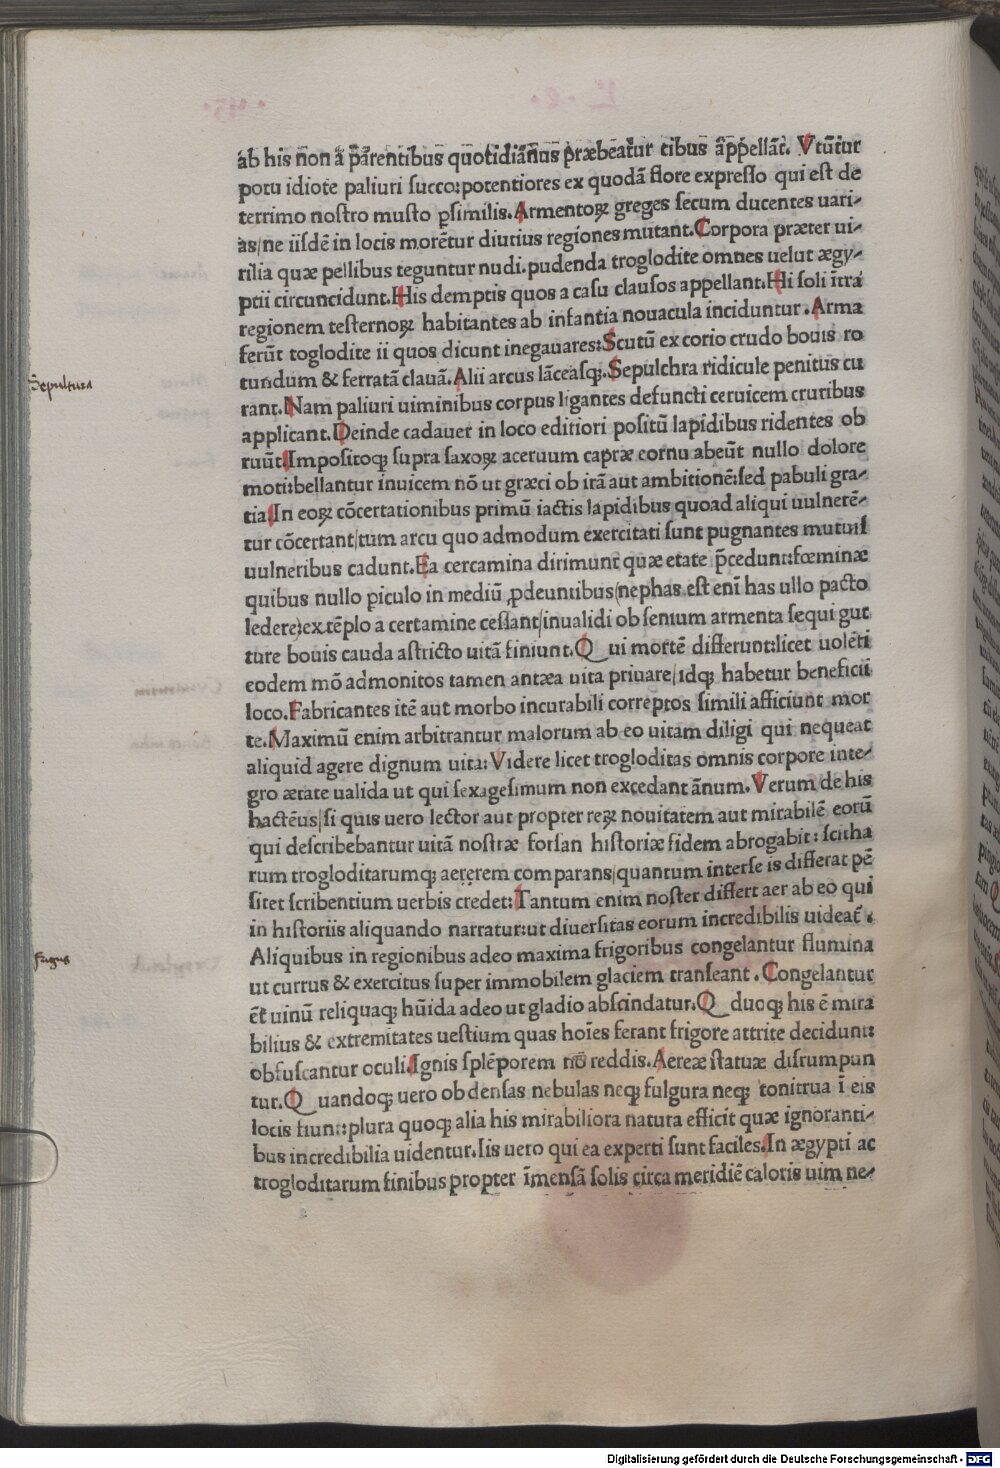 ab his non a p̄arentibus quotidiānus præbeatur cibus āppellāt. Vtūtur
potu idiote paliuri succo: potentiores ex quodā flore expresso qui est de
terrimo nostro musto ꝑsimilis. Armentoꝝ greges secum ducentes uari⸗
as/ne iisdē in locis morētur diutius regiones mutant. Corpora præter ui⸗
rilia quæ pellibus teguntur nudi. pudenda troglodite omnes uelut ægy⸗
ptii circuncidunt. His demptis quos a casu clausos appellant. Hi soli ītra
regionem testernoꝝ habitantes ab infantia nouacula inciduntur. Arma
ferūt toglodite ii quos dicunt inegauares: Scutū ex corio crudo bouis ro
tundum & ferratā clauā. Alii arcus lāceasqꝫ. Sepulchra ridicule penitus cu
rant. Nam paliuri uiminibus corpus ligantes defuncti ceruicem cruribus
applicant. Deinde cadauer in loco editiori positū lapidibus ridentes ob
ruūt. Impositoqꝫ supra saxoꝝ aceruum capræ cornu abeūt nullo dolore
moti: bellantur inuicem nō ut græci ob irā aut ambitionē: sed pabuli gra⸗
tia. In eoꝝ cōcertationibus primū iactis lapidibus quoad aliqui uulnerē⸗
tur cōcertant/tum arcu quo admodum exercitati sunt pugnantes mutuis
uulneribus cadunt. Ea cercamina dirimunt quæ etate p̄cedunt: fœminæ
quibus nullo ꝑiculo in mediū ꝓdeuntibus (nephas est enī has ullo pacto
ledere) extēplo a certamine cessant/inualidi ob senium armenta sequi gut
ture bouis cauda astricto uitā finiunt. Qui mortē differunt: licet uolēti
eodem mō admonitos tamen antæa uita priuare/idqꝫ habetur beneficii
loco. Fabricantes itē aut morbo incurabili correptos simili afficiunt mor
te. Maximū enim arbitrantur malorum ab eo uitam diligi qui nequeat
aliquid agere dignum uita: Videre licet trogloditas omnis corpore inte⸗
gro ætate ualida ut qui sexagesimum non excedant ānum. Verum de his
hactēus/si quis uero lector aut propter reꝝ nouitatem aut mirabilē eorū
qui describebantur uitā nostræ forsan historiæ fidem abrogabit: scitha
rum trogloditarumqꝫ aererem comparans/quantum interse is differat pē
sitet scribentium uerbis credet: Tantum enim noster differt aer ab eo qui
in historiis aliquando narratur: ut diuersitas eorum incredibilis uideat̄.
Sepultura
Aliquibus in regionibus adeo maxima frigoribus congelantur flumina
frigus
ut currus & exercitus super immobilem glaciem transeant. Congelantur
ēt uinū reliquaqꝫ hūida adeo ut gladio abscindatur. Quodqꝫ his ē mira
bilius & extremitates uestium quas hoīes ferant frigore attrite decidunt:
obfuscantur oculi. Ignis splēporem nō reddis. Aereæ statuæ disrumpun
tur. Quandoqꝫ uero ob densas nebulas neqꝫ fulgura neqꝫ tonitrua ī eis
locis fiunt: plura quoqꝫ alia his mirabiliora natura efficit quæ ignoranti⸗
bus incredibilia uidentur. Iis uero qui ea experti sunt faciles. In ægypti ac
trogloditarum finibus propter īmensā solis circa meridiē caloris uim ne⸗
Digitalisierung gefördert durch die Deutsche Forschungsgemeinschaft - DFG